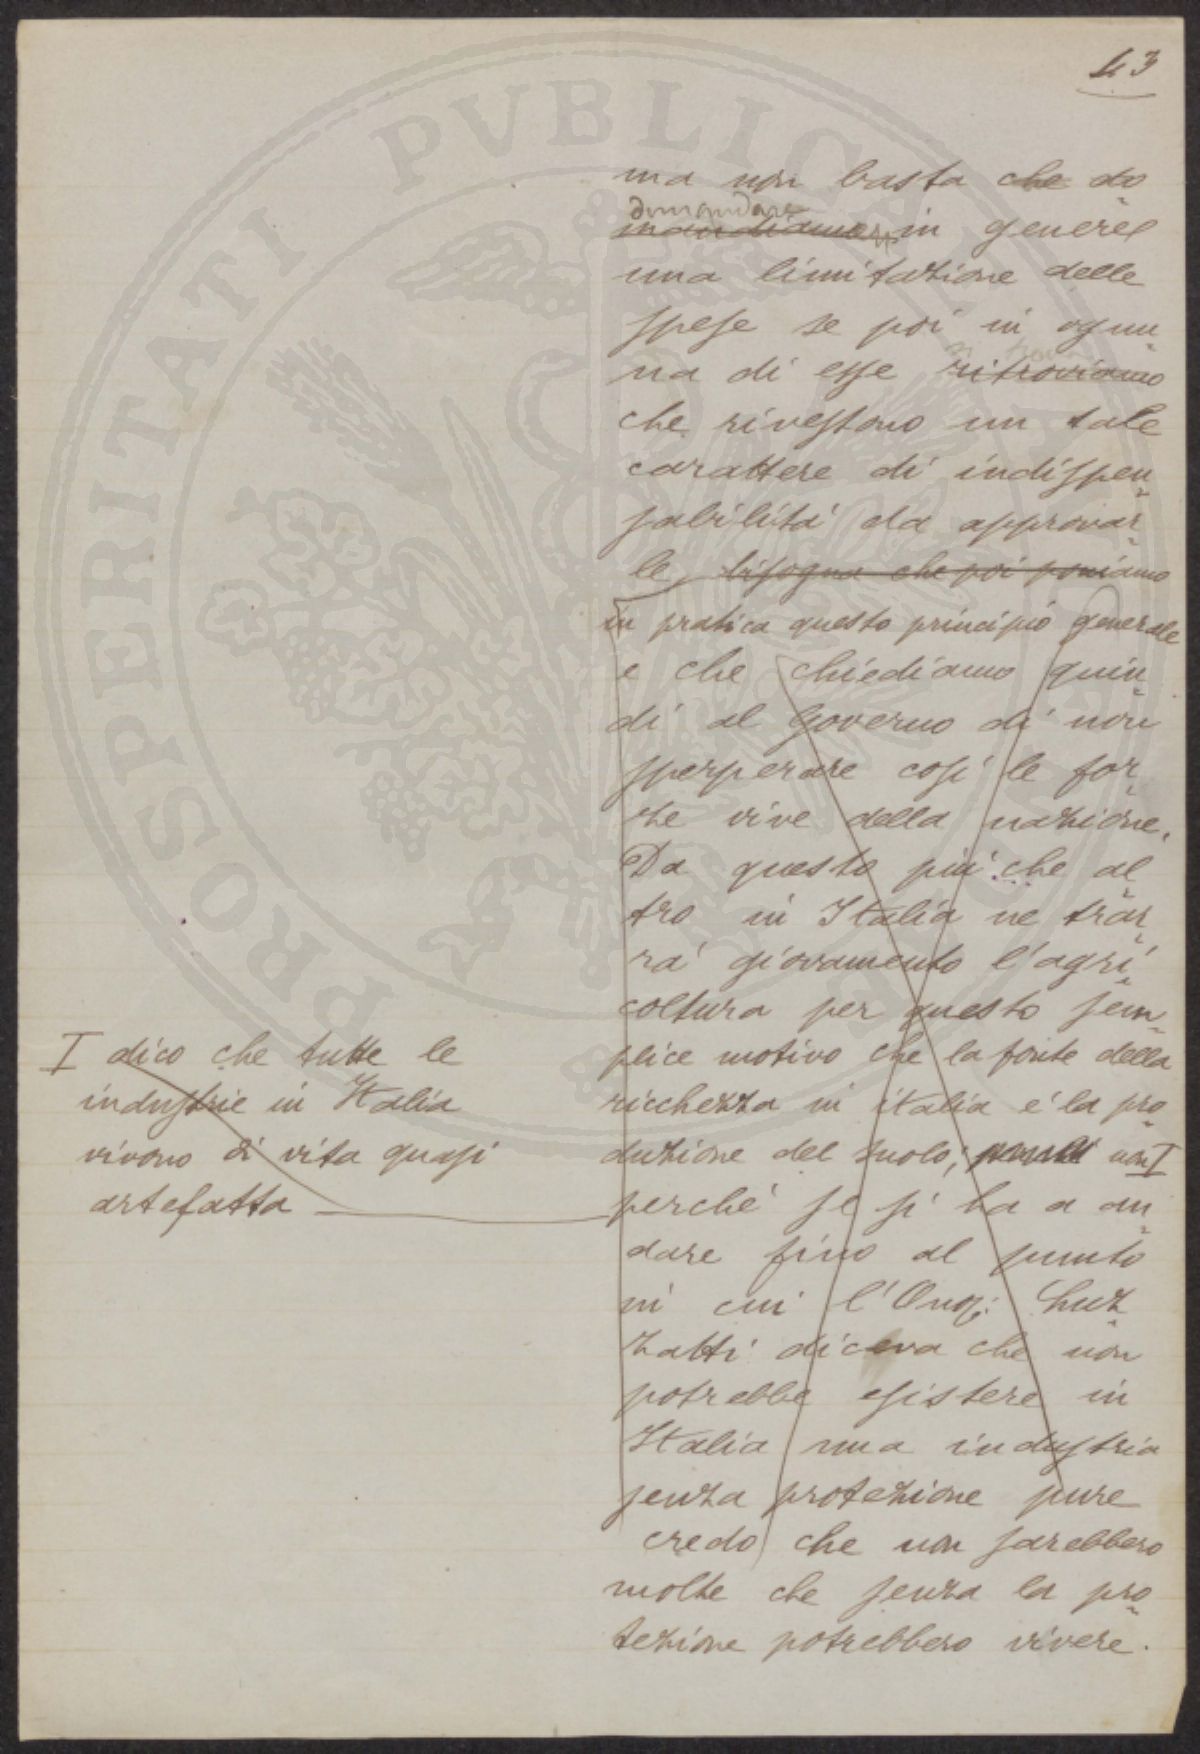 43
ma non basta che do
domandare
mandiamo in genere
una limitazione delle
spese se poi in ognu
na di esse ritroviamo
che rivestono un tale
carattere di indispen
sabilità da approvar
le, bisogna che poi poniamo
in pratica questo principio generale
e che chiediamo quin
di al Governo di non
sperperare così le for
ze vive della nazione.
Da questo più che al
tro in Italia ne trar
rà giovamento l'agri
coltura per questo sem
plice motivo che la fonte della
ricchezza in italia é la pro
duzione del suolo; non I
perché se si ha a an
dare fino al punto
in cui l'Onor: Luz
zatti diceva che non
potrebbe esistere in
Italia una industria
senza protezione pure
credo che non sarebbero
molte che senza la pro
tezione potrebbero vivere.
I dico che tutte le
industrie in Italia
vivono di vita quasi
artefatta
PROSPERITATI PVBLICAE